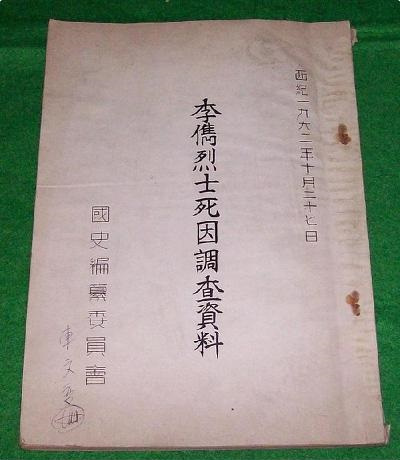 西紀一九六二年十月二十七日
李儁烈士死因調査資料
國史編纂委員會